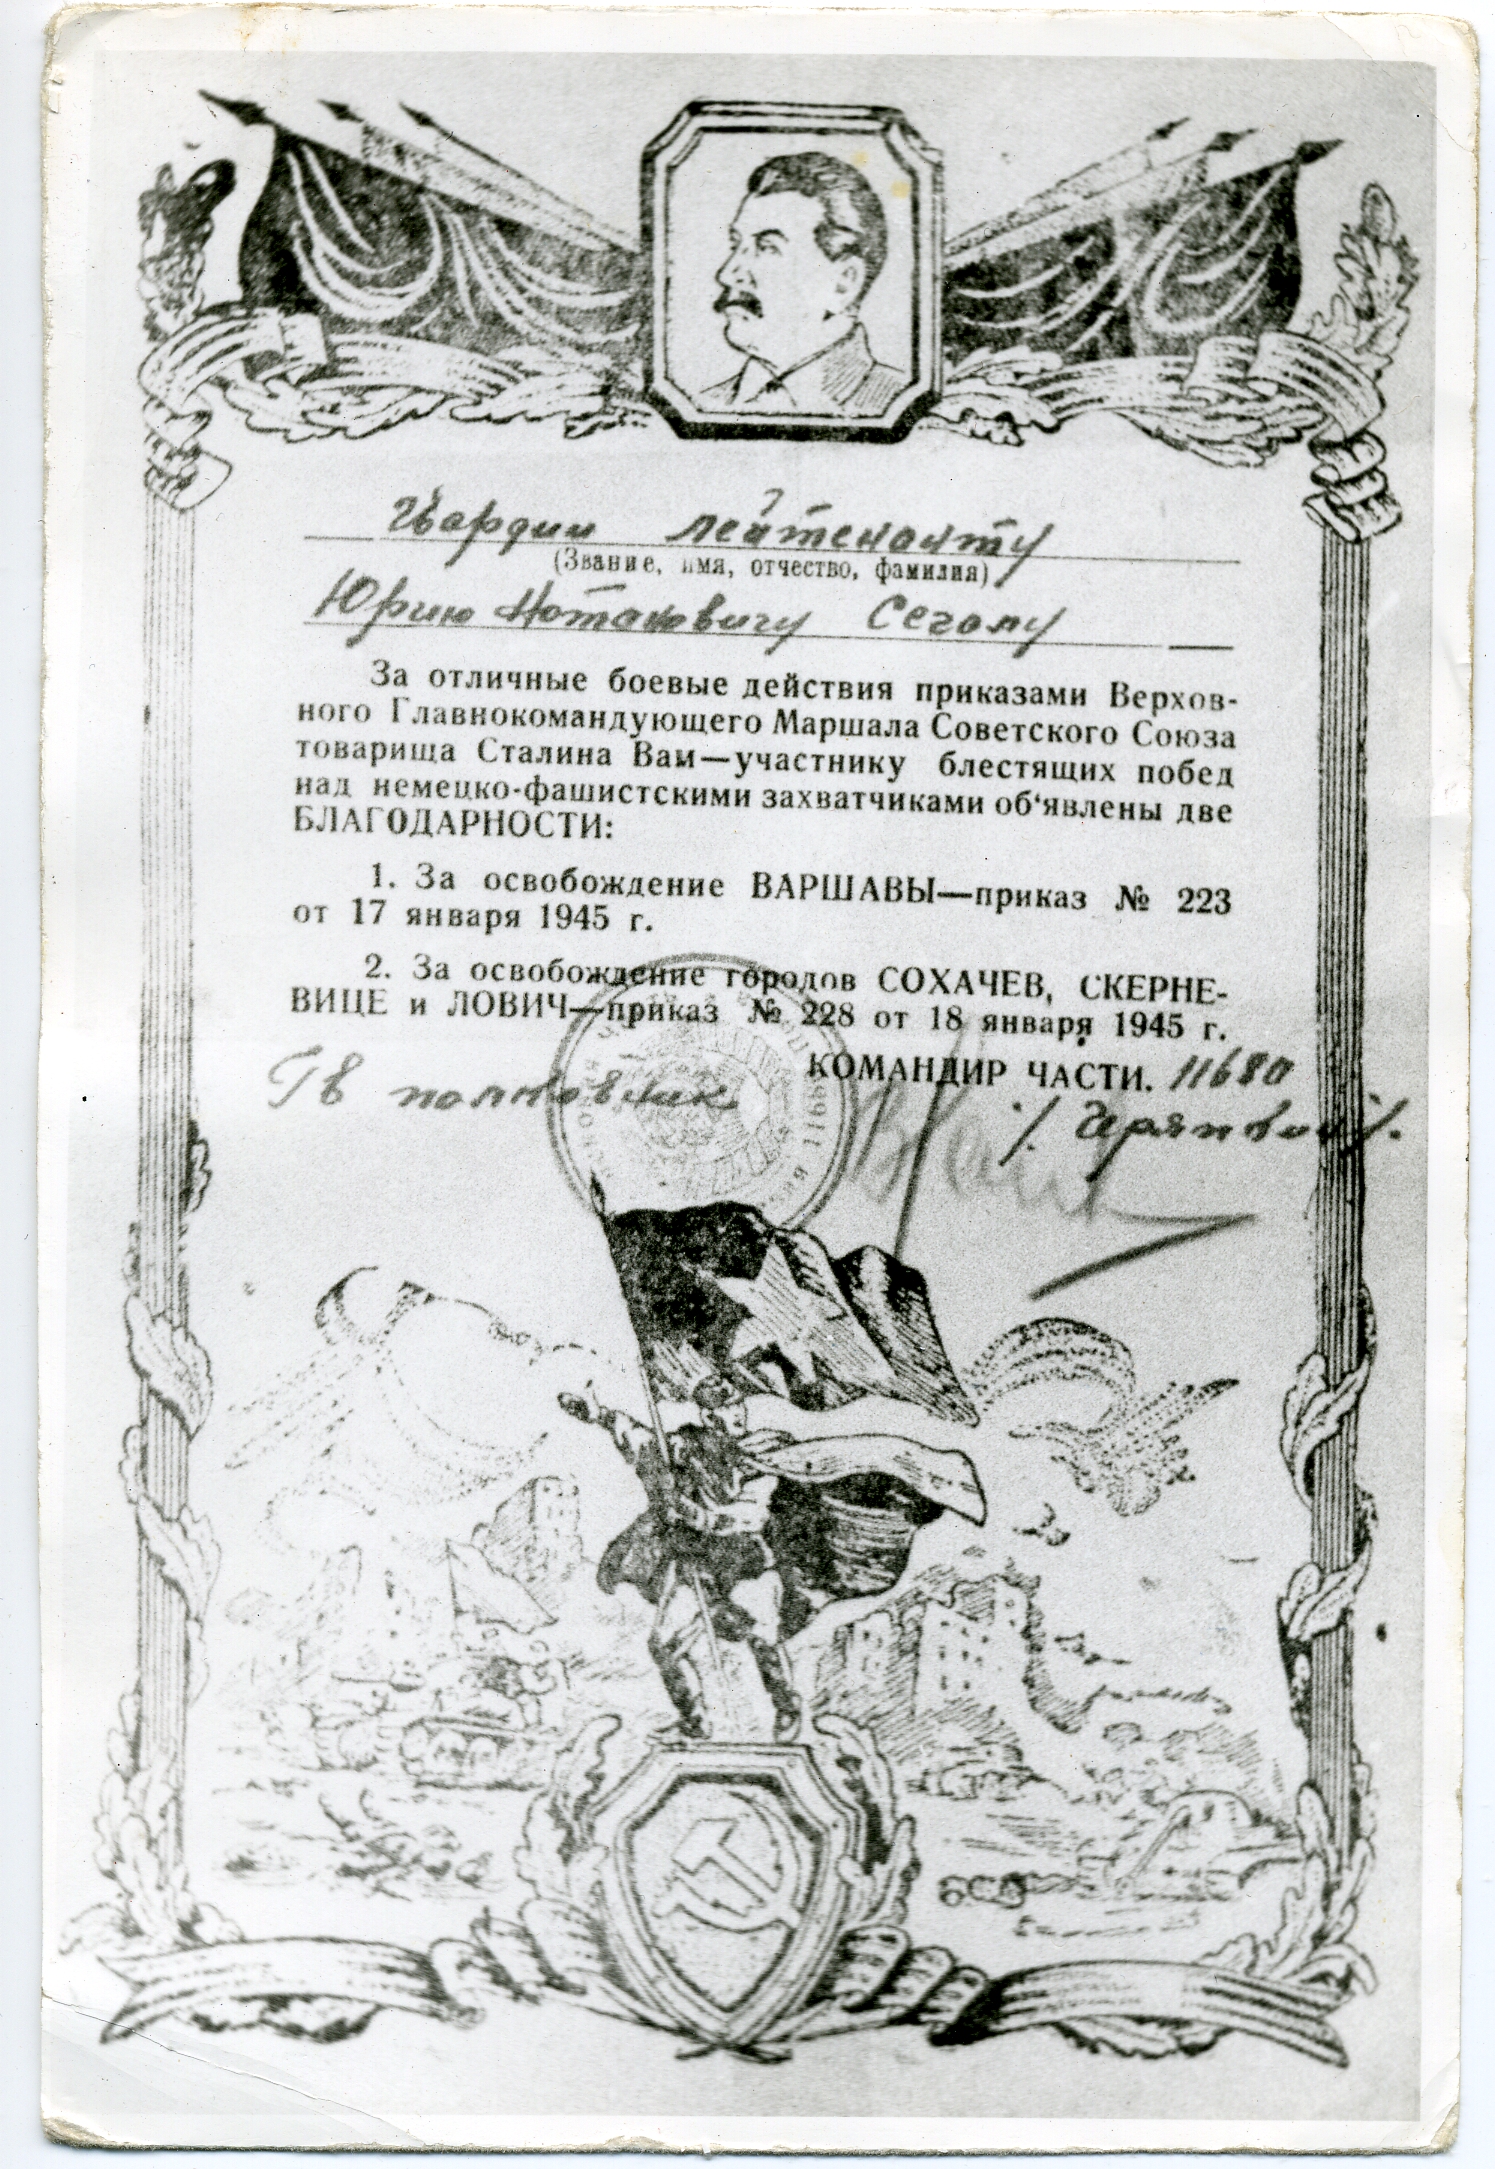 Гвардии лейтенанту
(Звание, имя, отчество, фамилия)
Юрию Натановичу Сегалу
За отличные боевые действия приказами Верхов-
ного Главнокомандующего Маршала Советского Союза
товарища Сталина Вам—участнику блестящих побед
над немецко-фашистскими захватчиками об‘явлены две
БЛАГОДАРНОСТИ:
1. За освобождение ВАРШАВЫ—приказ № 223
от 17 января 1945 г.
2. За освобождение городов СОХАЧЕВ, СКЕРНЕ-
ВИЦЕ и ЛОВИЧ—приказ № 228 от 18 января 1945 г.
КОМАНДИР ЧАСТИ. 11680
Гв полковник